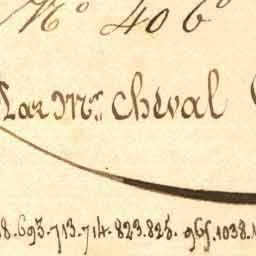 N° 406°
Par Mr. Cheval
8.693.713.714.823.825.965.1038.